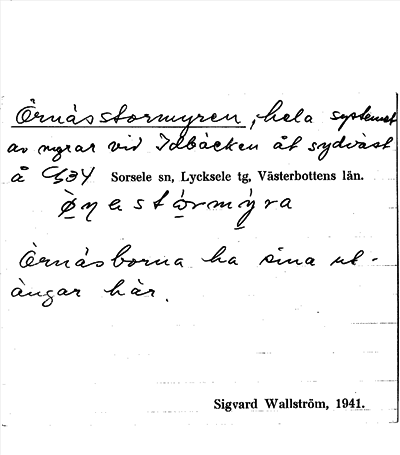 Örnäs stormyren, hela systemet
av myrar vid Idbäcken åt sydväst
å G34 Sorsele sn, Lycksele tg, Västerbottens län.
Örnäsborna ha sina ut-
ängar här.
Sigvard Wallström, 1941.